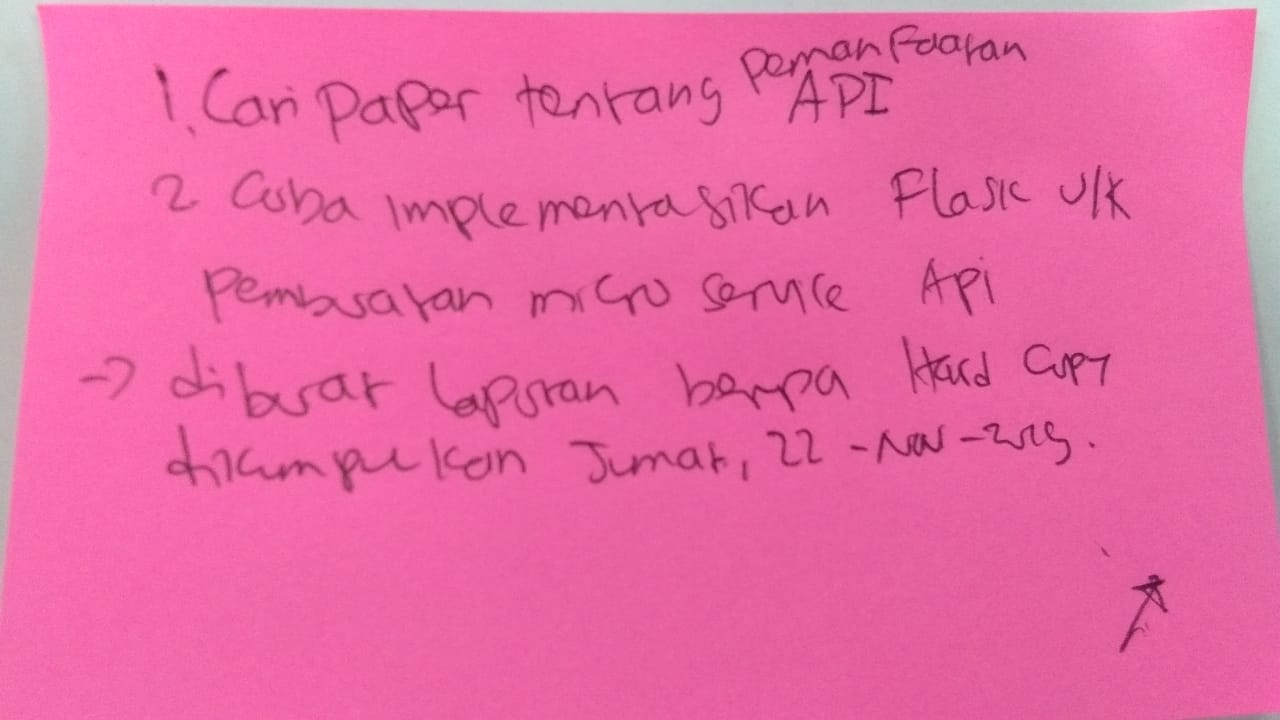 1. Cari paper tentang pemanfaatan API
2 Coba implementasikan Flask u/k
pembuatan micro service Api
-> dibuat laporan berupa Hard Copy
dikumpulkan Jumat, 22 - Nov - 2019.